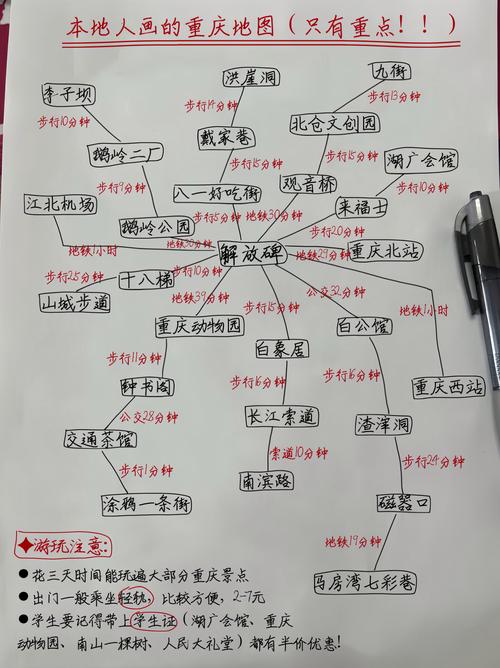 本地人画的重庆地图(只有重点!!)
洪崖洞
九街
李子坝
步行14分钟
步行13分钟
步行10分钟
戴家巷
北仓文创园
鹅岭二厂
步行15分钟
步行15分钟
湖广会馆
步行9分钟
八一好吃街
观音桥
步行10分钟
江北机场
鹅岭公园
步行5分钟
地铁30分钟
来福士
步行20分钟
地铁1小时
地铁30分钟
解放碑
地铁29分钟
重庆北站
步行25分钟
十八梯
步行10分钟
山城步道
地铁39分钟
公交32分钟
地铁1小时
重庆动物园
步行15分钟
白公馆
白象居
步行11分钟
钟书阁
步行16分钟
步行16分钟
重庆西站
公交28分钟
长江索道
渣滓洞
交通茶馆
索道10分钟
步行24分钟
步行1分钟
南滨路
涂鸦一条街
磁器口
地铁19分钟
游玩注意:
马房湾七彩巷
●花三天时间能玩遍大部分重庆景点
●出门一般乘坐轻轨,比较方便,2-7元
●学生要记得带上学生证(湖广会馆、重庆
动物园、南山一棵树、人民大礼堂)都有半价优惠!